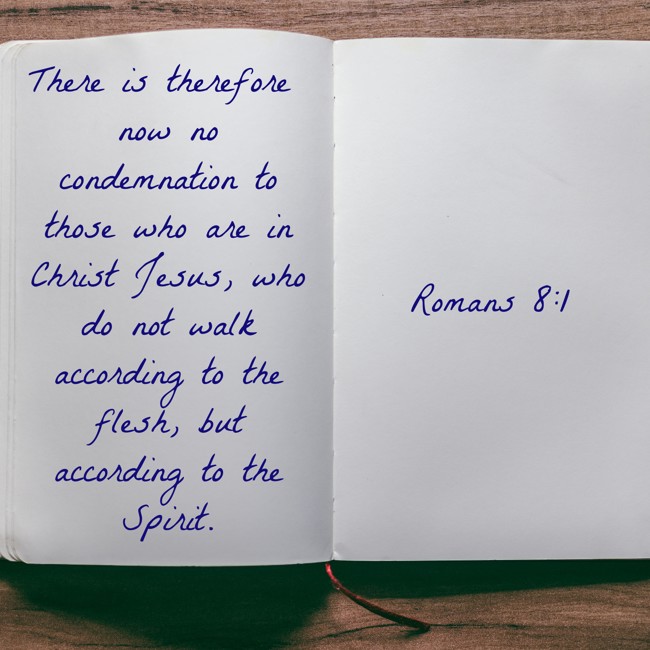 There is therefore
now no
condemnation to
those who are in
Christ Jesus, who
do not walk
according to the
flesh, but
according to the
Spirit.
Romans 8:1